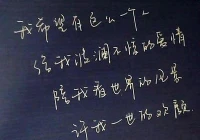 我希望有色么一个人
给我波澜不惊的爱情
陪我看世界的风景
许我一世的欢颜